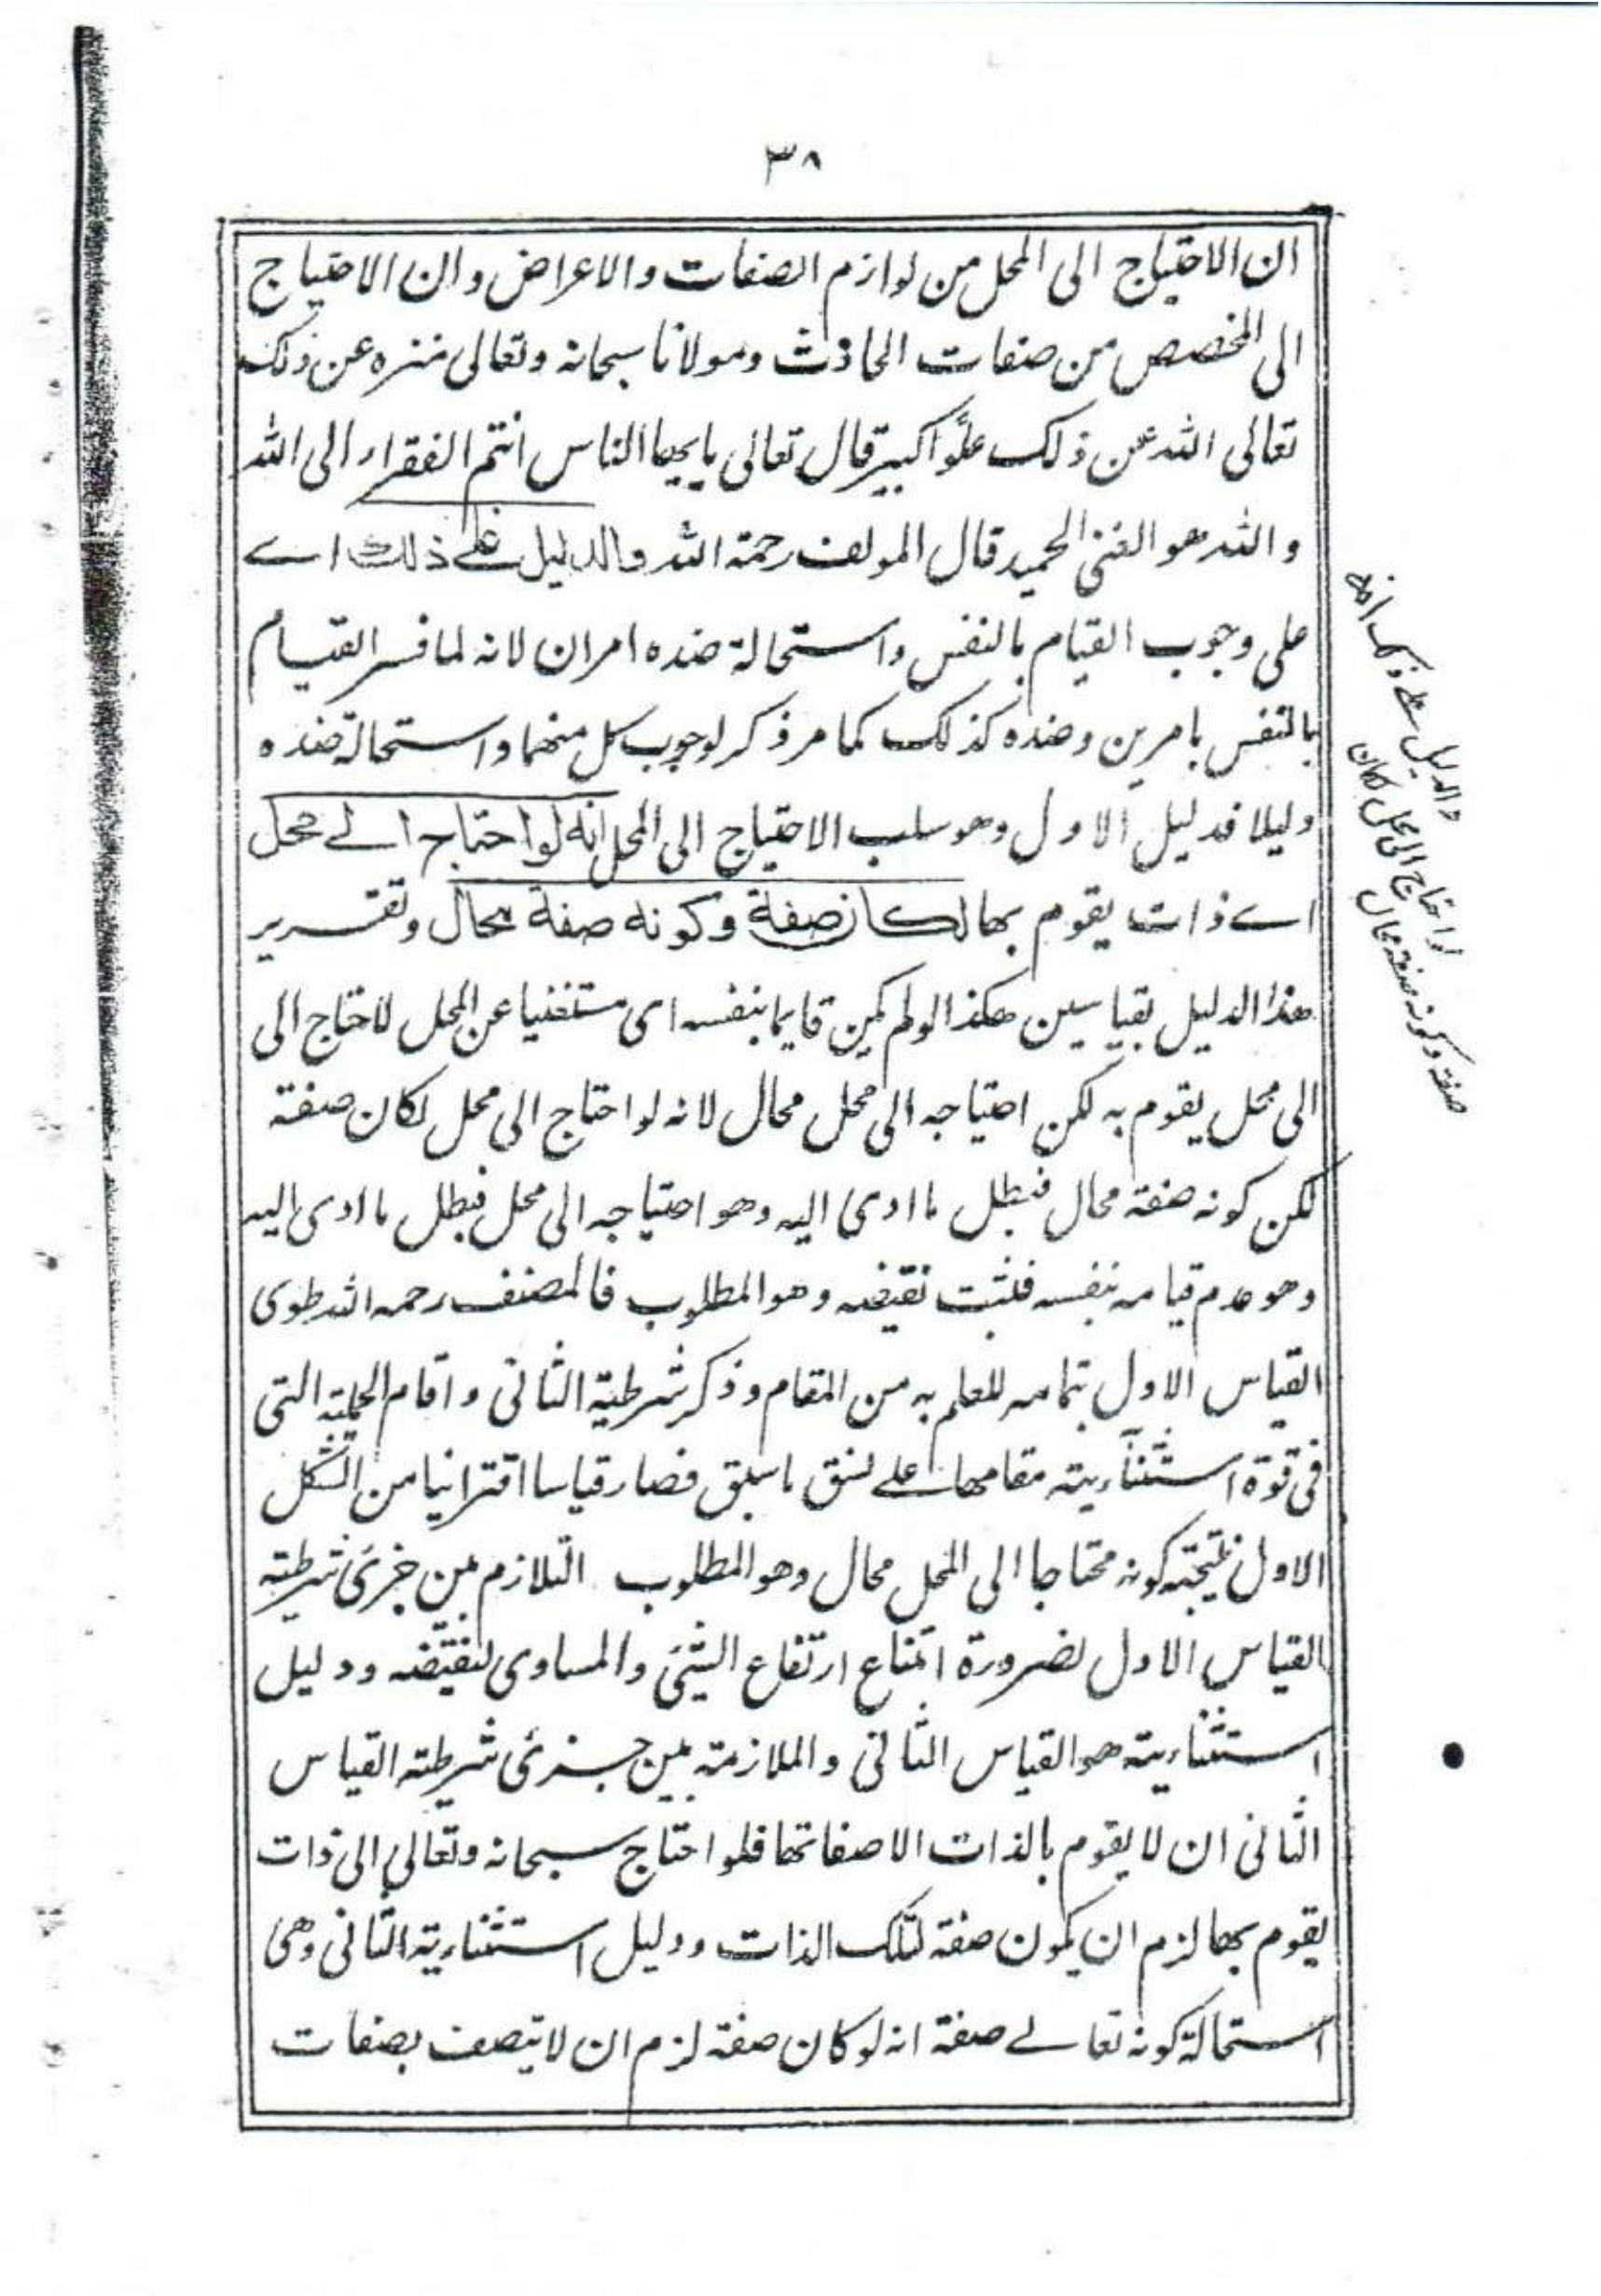 ٣٨
ان الاحتياج الى المحل من لوازم الصفات والاعراض وان الاحتياج
الى المخصص من صفات الحادث ومولانا سبحانه وتعالى منزه عن ذلك
تعالى الله عن ذلك علوًّا كبير قال تعالى يايها الناس انتم الفقراء الى الله
والله هو الغنى الحميد قال المولف رحمة الله والدليل على ذلك اے
على وجوب القيام بالنفس واستحالة ضده امران لانه لما فسر القيام
بالنفس بامرين وضده كذلك كما مر ذكر لوجوب كل منهما واستحالة ضده
دليلا فدليل الاول وهو سلب الاحتياج الى المحل انه لو احتاج الے محل
اے ذات يقوم بها لكان صفة وكونه صفة محال وتقرير
هذا الدليل بقياسين هكذا لو لم يكن قايما بنفسه اى مستغنيا عن المحل لاحتاج الى
الى محل يقوم به لكن احتياجه الى محل محال لانه لو احتاج الى محل لكان صفة
لكن كونه صفة محال فبطل ما ادى اليه وهو احتياجه الى محل فبطل ما ادى اليه
وهو عدم قيامه بنفسه فثبت نقيضه وهو المطلوب فالمصنف رحمه الله طوى
القياس الاول بتمامه للعلم به من المقام وذكر شرطية الثانى واقام الحملية التى
فى قوة استثناءيته مقامها على نسق ما سبق فصار قياسا اقترانيا من الشكل
الاول نتيجته كونه محتاجا الى المحل محال وهو المطلوب التلازم بين جزئ شرطية
القياس الاول لضرورة امتناع ارتفاع الشئ والمساوى لنقيضه ودليل
استثناءيته هو القياس الثانى والملازمة بين جزئ شرطية القياس
الثانى ان لا يقوم بالذات الا صفاتها فلو احتاج سبحانه وتعالى الى ذات
يقوم بها لزم ان يكون صفة لتلك الذات ودليل استثناءية الثانى وهى
استحالة كونه تعالے صفة انه لو كان صفة لزم ان لا يتصف بصفات
والدليل علے ذلك انه
لو احتاج الى محل لكان
صفة وكونه صفة محال